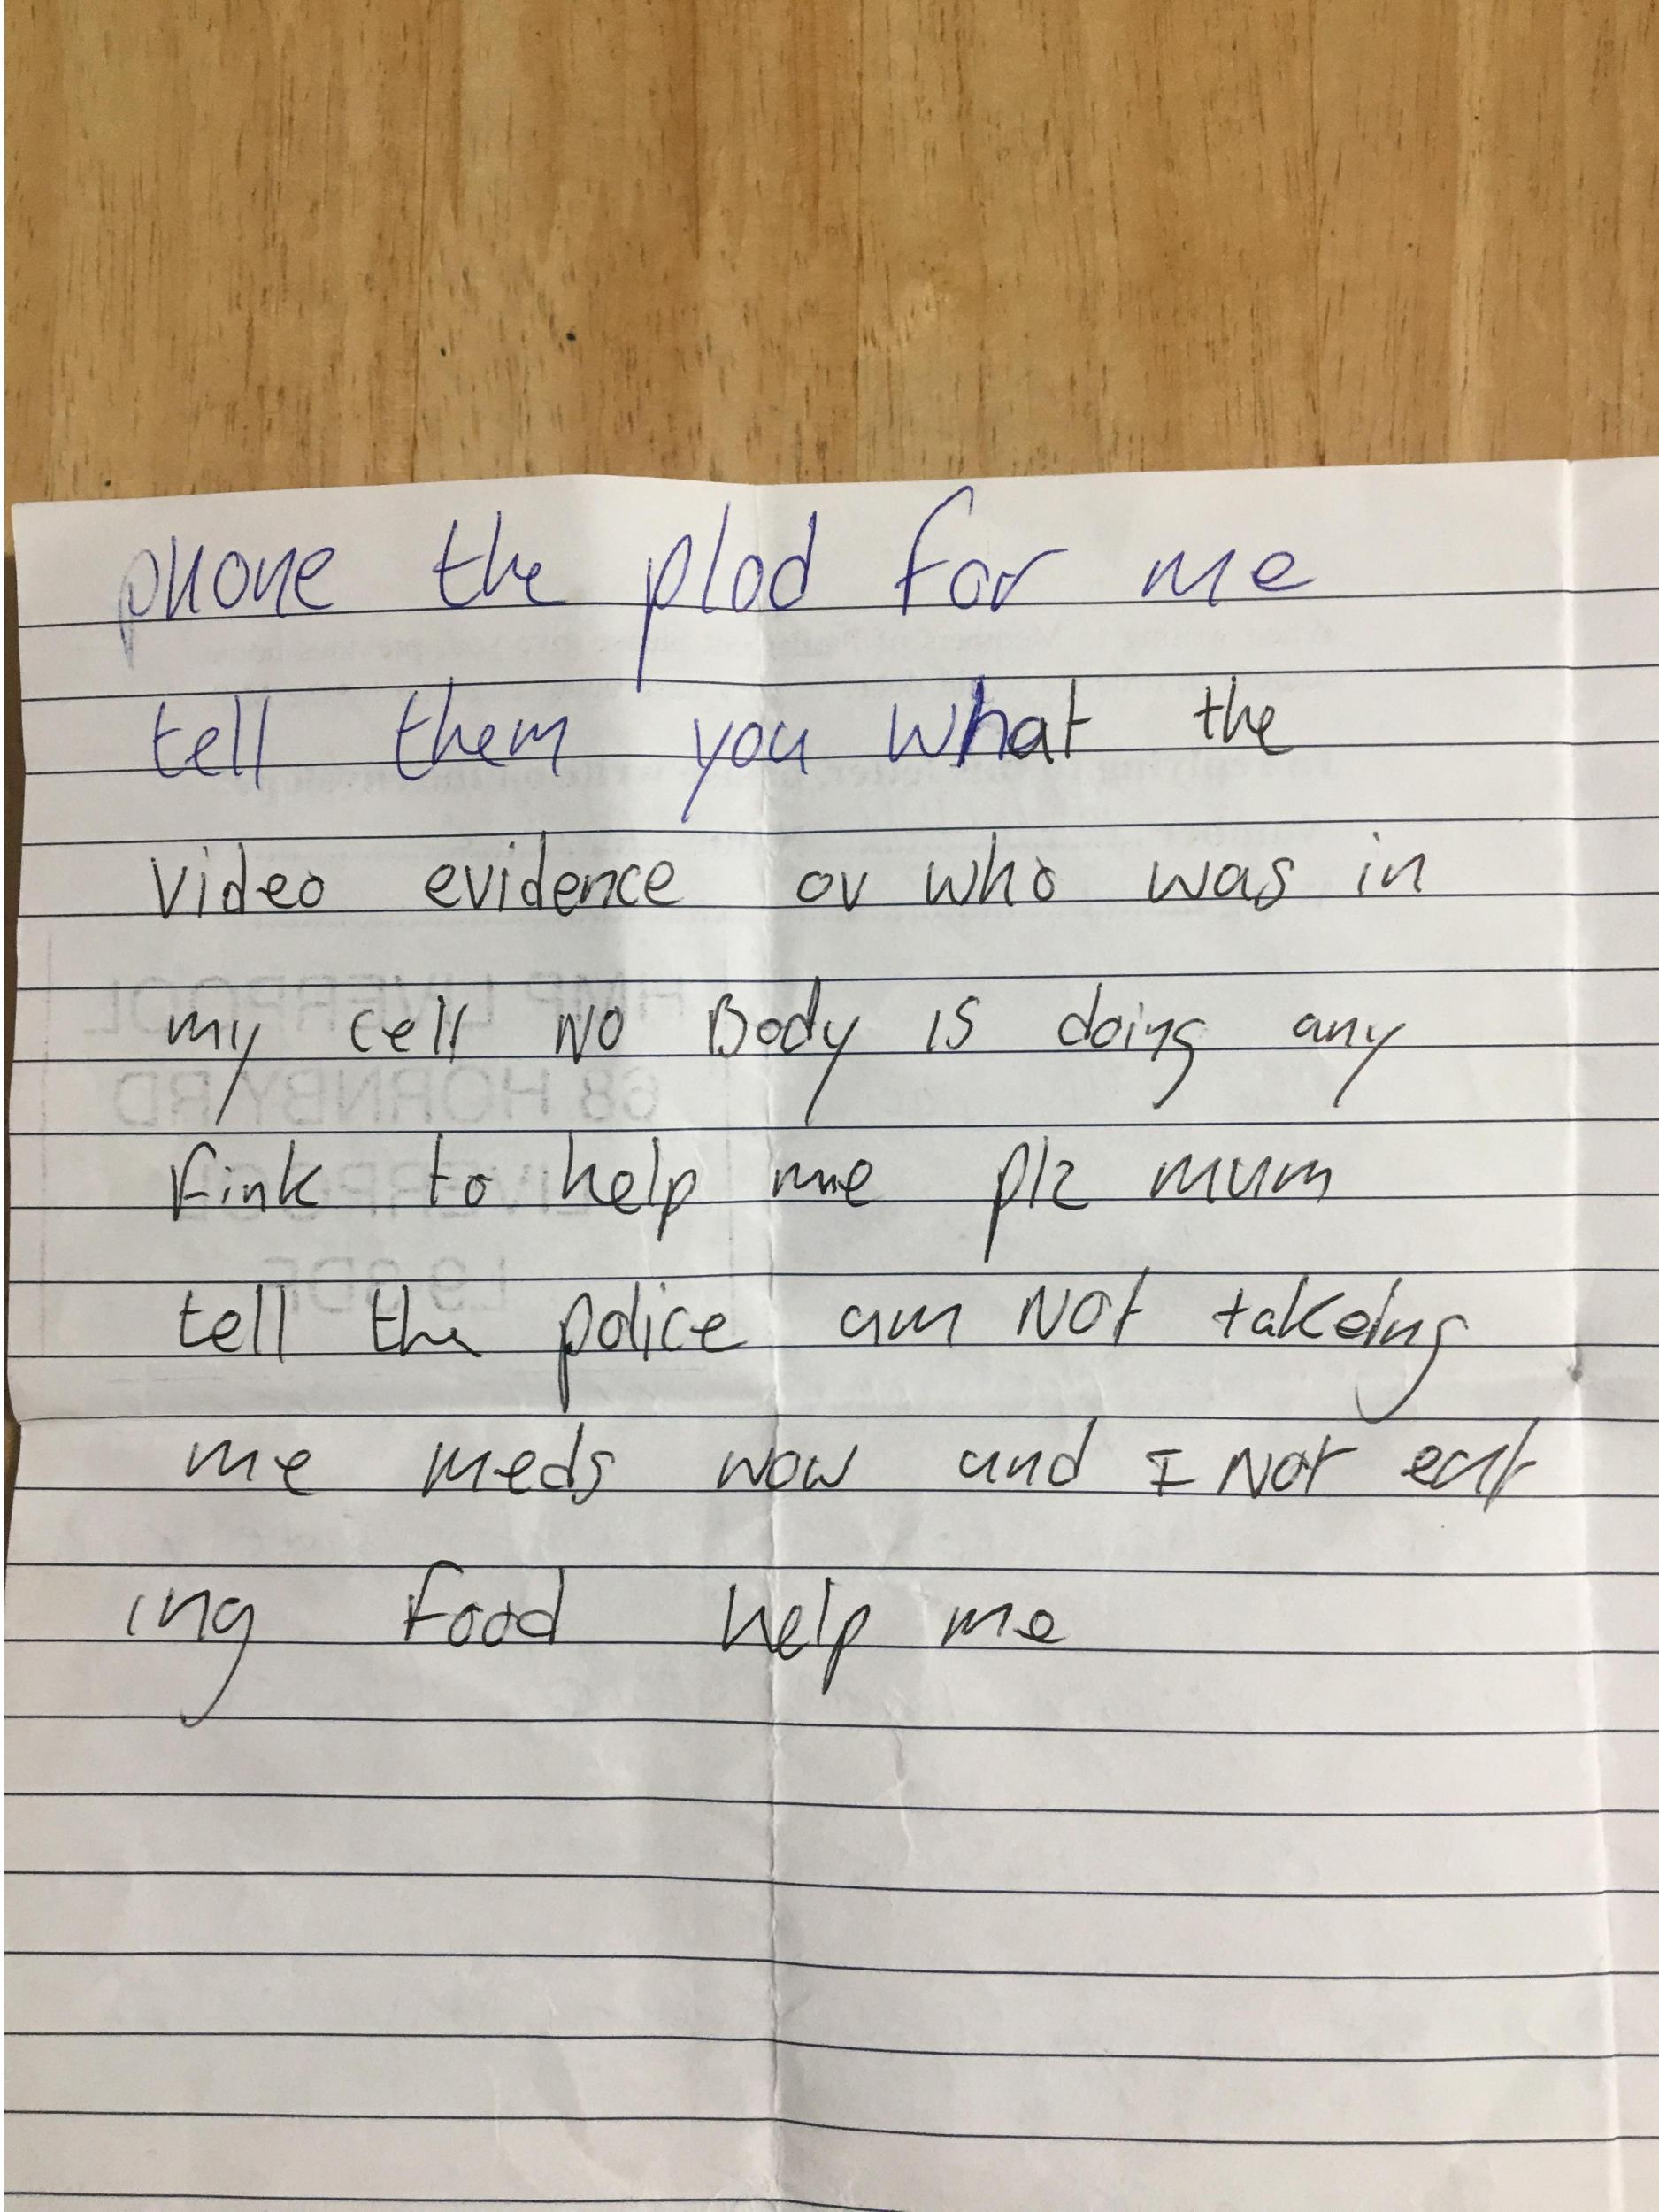 phone the plod for me
tell them you what the
video evidence ov who was in
my cell NO Body is doing any
fink to help me plz mum
tell the police am NOt takeing
me meds now and I Not eat
ing food help me
HMP LIVERPOOL
68 HORNBY RD
LIVERPOOL
L9 3DF